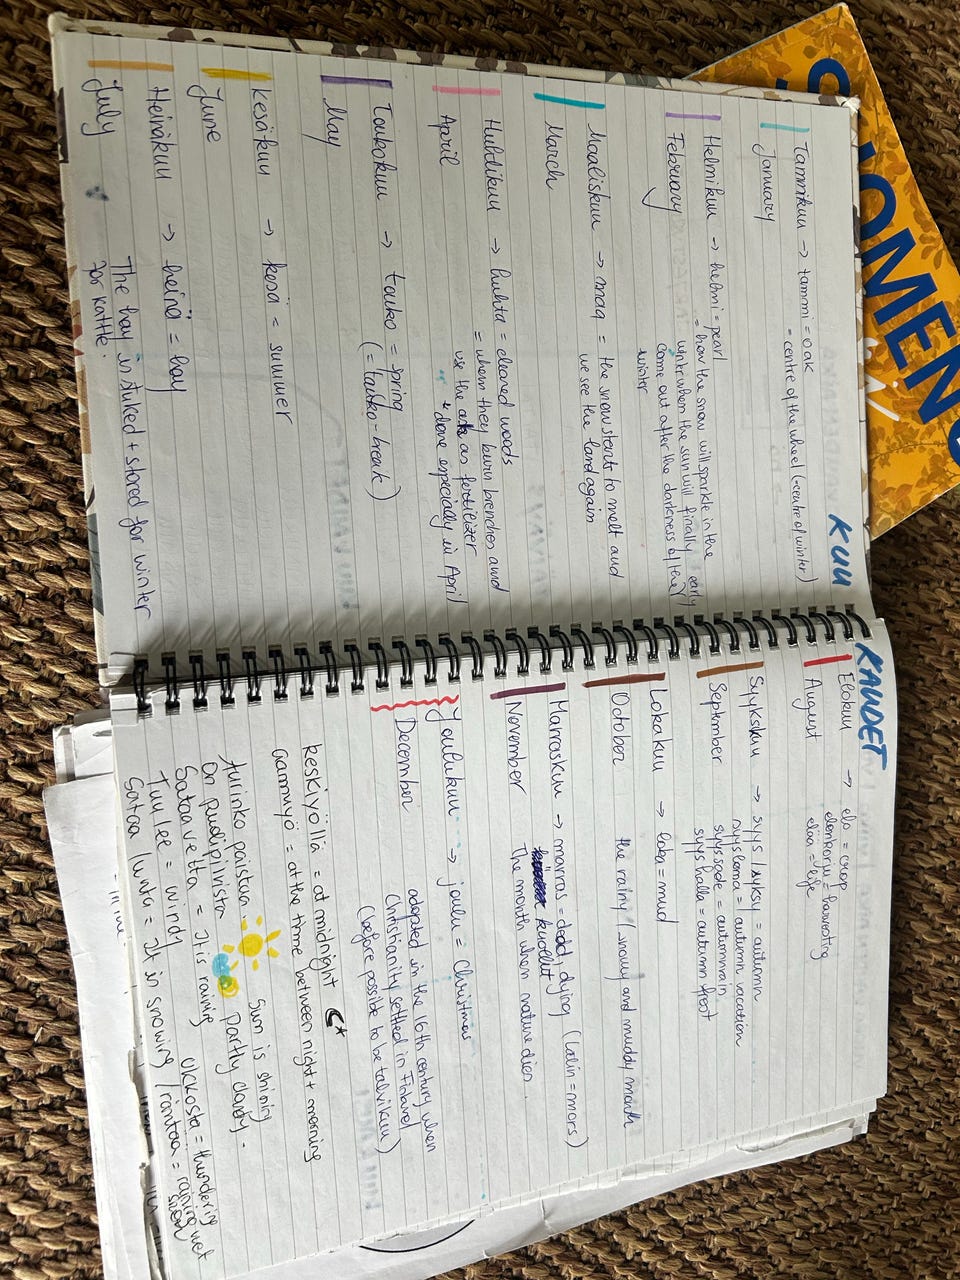 KUUKAUDET
Tammikuu → tammi = oak
January = centre of the wheel (=centre of winter)
Helmikuu → helmi = pearl
February = how the snow will sparkle in the early
winter when the sun will finally
come out after the darkness of the
winter
Maaliskuu → maa = the snow starts to melt and
March we see the land again
Huhtikuu → huhta = cleared woods
April = when they burn branches and
use the ash as fertilizer
+ done especially in April
Toukokuu → touko = spring
May (= tauko - break)
Kesäkuu → kesä = summer
June
Heinäkuu → heinä = hay
July The hay is stuked + stored for winter
for kattle.
Elokuu → elo = crop
August elonkorjuu = harvesting
elää = life
Syyskuu → syys / syksy = autumn
September syysloma = autumn vacation
syyssade = autumn rain
syyshalla = autumn frost
Lokakuu → loka = mud
October the rainy / snowy and muddy month
Marraskuu → marras = dying (latin = mors)
kuollut
November The month when nature dies.
Joulukuu → joulu = Christmas
December adopted in the 16th century when
Christianity settled in Finland
(before possible to be talvikuu)
keskiyöllä = at midnight
aamuyö = at the time between night + morning
Aurinko paistaa. Sun is shining
On puolipilvistä partly cloudy.
Sataa vettä = It is raining ukkosta = thundering
Tuulee = windy
Sataa lunta = It is snowing / räntää = raining wet
snow
SUOMEN